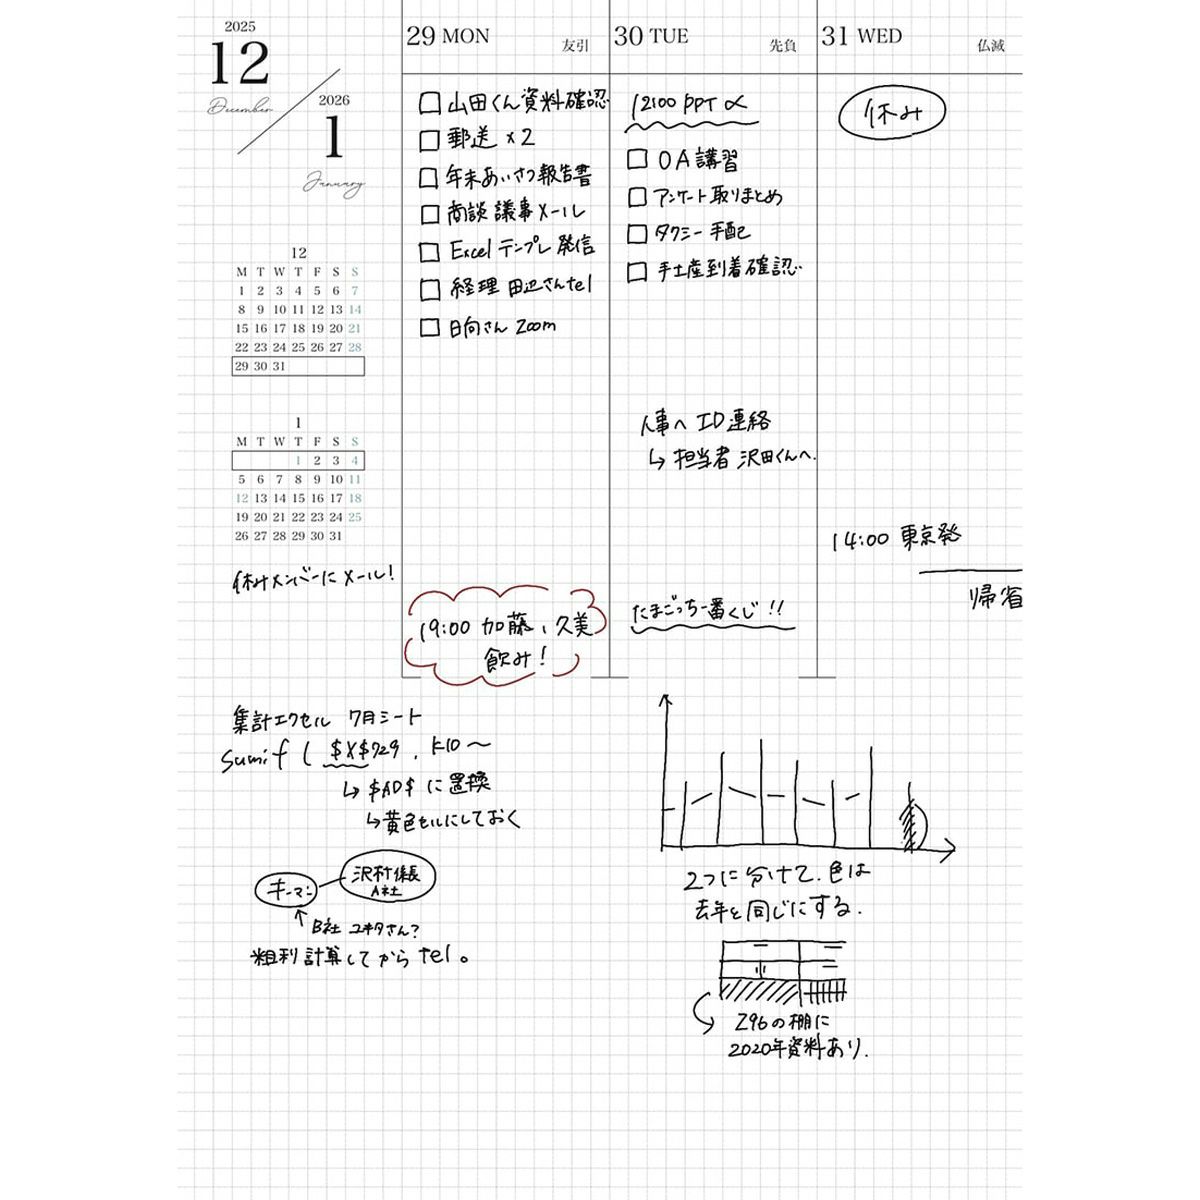 2025
12
December
2026
1
January
12
M T W T F S S
1 2 3 4 5 6 7
8 9 10 11 12 13 14
15 16 17 18 19 20 21
22 23 24 25 26 27 28
29 30 31
1
M T W T F S S
1 2 3 4
5 6 7 8 9 10 11
12 13 14 15 16 17 18
19 20 21 22 23 24 25
26 27 28 29 30 31
休みメンバーにメール!
29 MON 友引
山田くん資料確認
郵送 x2
年末あいさつ報告書
商談 議事メール
Excel テンプレ発信
経理 田辺さんtel
日向さん Zoom
19:00 加藤、久美
飲み!
30 TUE 先負
12:00 PPT〆
OA講習
アンケート取りまとめ
タクシー手配
手土産到着確認
人事へ ID連絡
↳ 担当者 沢田くんへ.
たまごっち一番くじ!!
31 WED 仏滅
休み
14:00 東京発
帰省
集計エクセル 7月シート
sumif ( $X$729, K10〜
↳ $AD$ に置換
↳黄色セルにしておく
キーマン
沢村係長
A社
B社 ユキタさん?
粗利計算してから tel。
2つに分けて. 色は
去年と同じにする.
Z96の棚に
2020年資料あり.